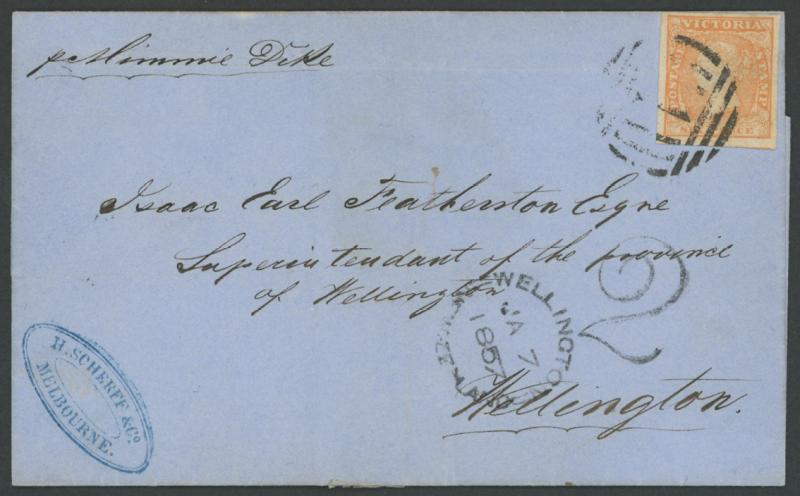 p Mimmie Dike
VICTORIA
POSTAGE
STAMP
Isaac Earl Featherston Esqre
Superintendant of the province
of Wellington
WELLINGTO
JA 7
1857
2
Wellington.
H. SCHERFF & Co.
MELBOURNE.